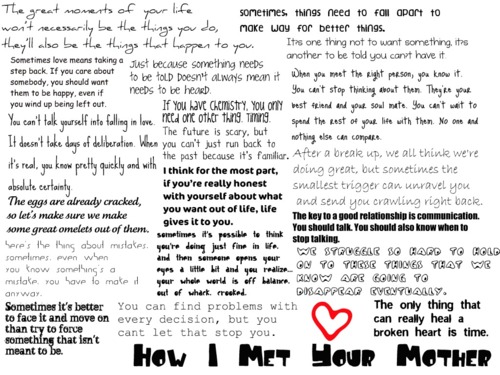 The great moments of your life
won't necessarily be the things you do,
they'll also be the things that happen to you.
sometimes, things need to fall apart to
make way for better things.
It's one thing not to want something, it's
another to be told you cant have it.
Sometimes love means taking a
step back. If you care about
somebody, you should want
them to be happy, even if
you wind up being left out.
Just because something needs
to be told Doesn't always mean it
needs to be heard.
When you meet the right person, you know it.
You can't stop thinking about them. They're your
best friend and your soul mate. You can't wait to
spend the rest of your life with them. No one and
nothing else can compare.
If you have chemistry, you only
need one other thing. Timing.
You can't talk yourself into falling in love.
It doesn't take days of deliberation. When
it's real, you know pretty quickly and with
absolute certainty.
The future is scary, but
you can't just run back to
the past because it's familiar.
After a break up, we all think we're
doing great, but sometimes the
smallest trigger can unravel you
and send you crawling right back.
I think for the most part,
if you're really honest
with yourself about what
you want out of life, life
gives it to you.
The eggs are already cracked,
so let's make sure we make
some great omelets out of them.
The key to a good relationship is communication.
You should talk. You should also know when to
stop talking.
sometimes it's possible to think
you're doing just fine in life.
and then someone opens your
eyes a little bit and you realize...
your whole world is off balance.
out of whark. crooked.
here's the thing about mistakes.
sometimes, even when
you know something's a
mistake, you have to make it
anyway.
We struggle so hard to hold
on to these things that we
know are going to
disappear eventually.
Sometimes it's better
to face it and move on
than try to force
something that isn't
meant to be.
You can find problems with
every decision, but you
cant let that stop you.
The only thing that
can really heal a
broken heart is time.
How I Met Your Mother